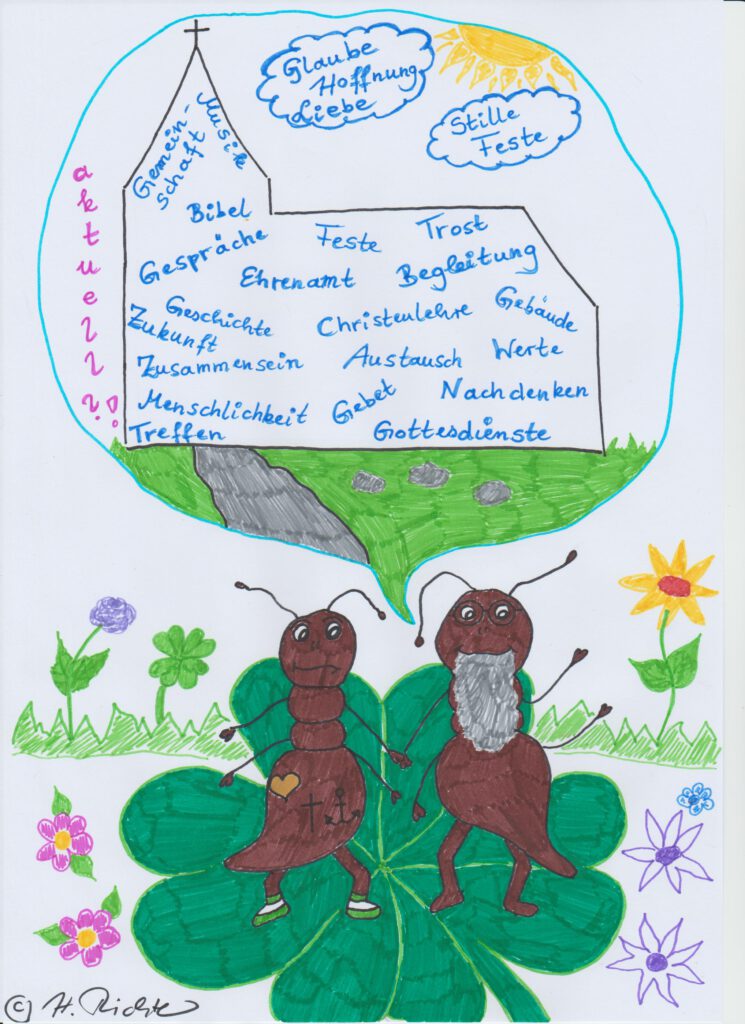 Glaube
Hoffnung
Liebe
Stille
Feste
aktuell?!
Gemein-
schaft
Musik
Bibel
Gespräche
Feste
Trost
Ehrenamt
Begleitung
Geschichte
Zukunft
Christenlehre
Gebäude
Zusammensein
Austausch
Werte
Menschlichkeit
Gebet
Nachdenken
Treffen
Gottesdienste
© H. Richter